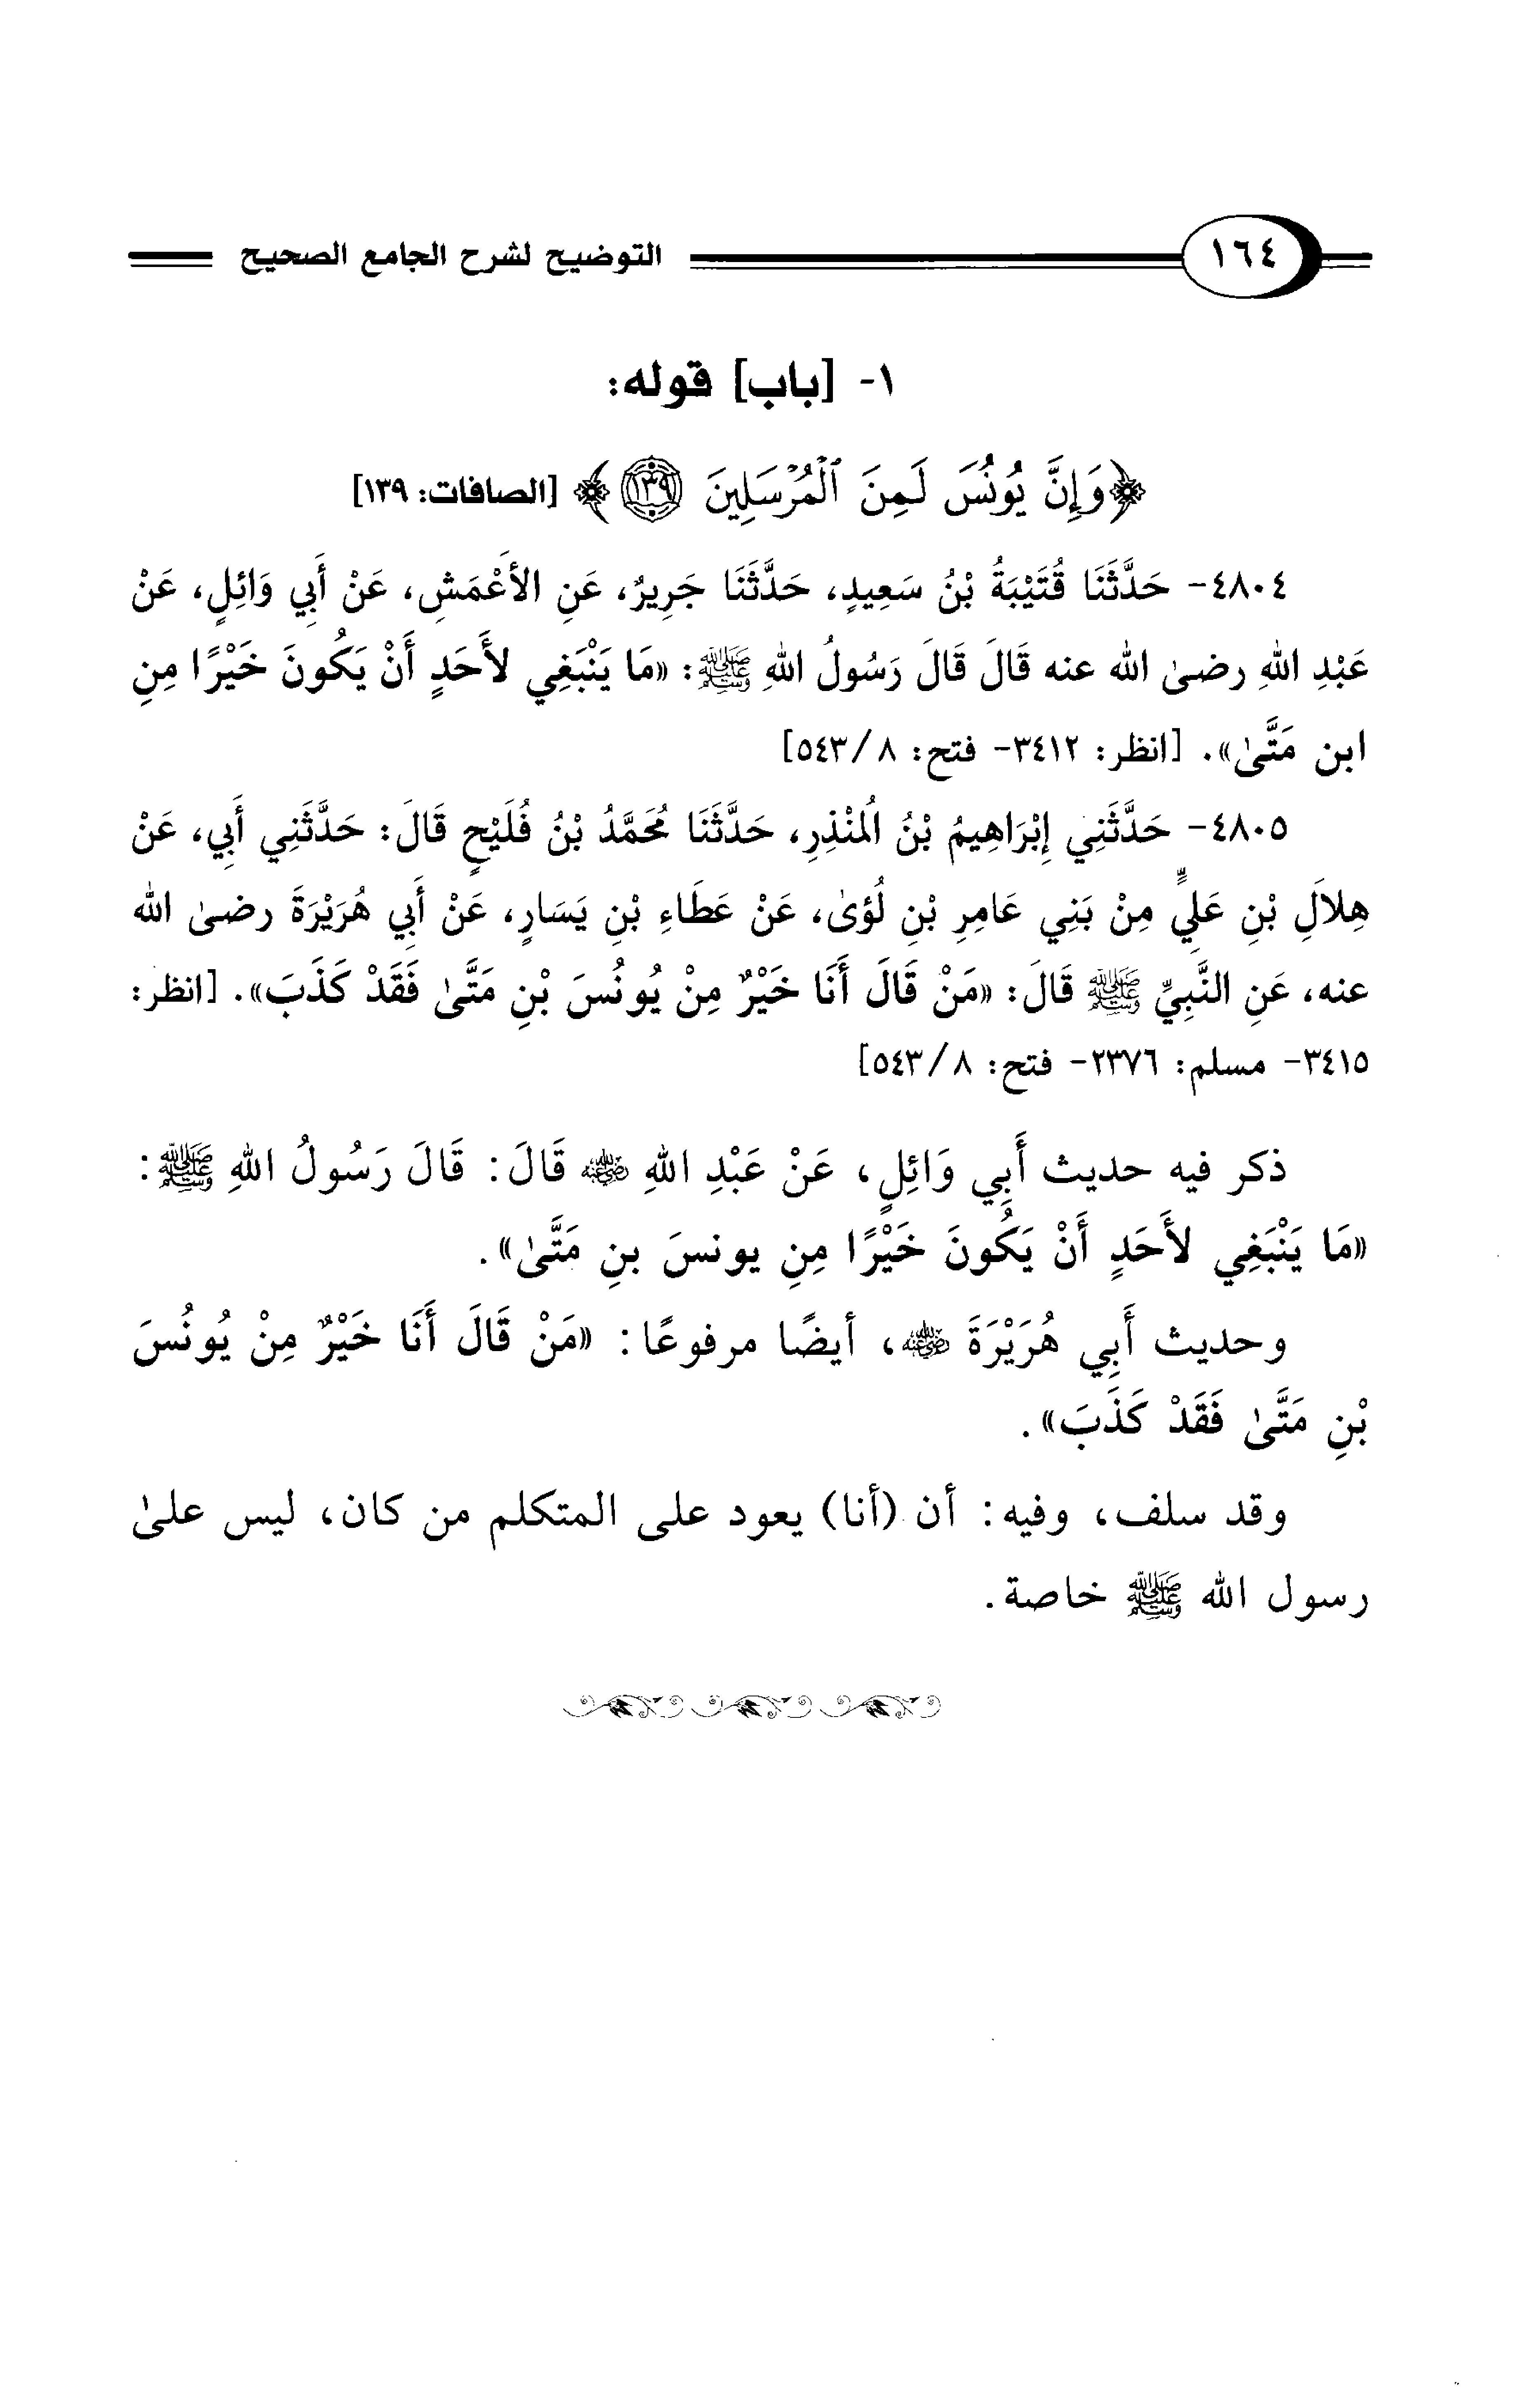 ١٦٤ التوضيح لشرح الجامع الصحيح
١- [باب] قوله:
﴿وَإِنَّ يُونُسَ لَمِنَ ٱلْمُرْسَلِينَ ١٣٩﴾ [الصافات: ١٣٩]
٤٨٠٤- حَدَّثَنَا قُتَيْبَةُ بْنُ سَعِيدٍ، حَدَّثَنَا جَرِيرٌ، عَنِ الأَعْمَشِ، عَنْ أَبِي وَائِلٍ، عَنْ
عَبْدِ اللهِ رضىٰ الله عنه قَالَ قَالَ رَسُولُ اللهِ ﷺ: «مَا يَنْبَغِي لأَحَدٍ أَنْ يَكُونَ خَيْرًا مِنِ
ابن مَتَّىٰ». [انظر: ٣٤١٢- فتح: ٨/ ٥٤٣]
٤٨٠٥- حَدَّثَنِي إِبْرَاهِيمُ بْنُ الُمنْذِرِ، حَدَّثَنَا مُحَمَّدُ بْنُ فُلَيْحٍ قَالَ: حَدَّثَنِي أَبِي، عَنْ
هِلاَلِ بْنِ عَلِيٍّ مِنْ بَنِي عَامِرِ بْنِ لُؤىٰ، عَنْ عَطَاءِ بْنِ يَسَارٍ، عَنْ أَبِي هُرَيْرَةَ رضىٰ الله
عنه، عَنِ النَّبِيِّ ﷺ قَالَ: «مَنْ قَالَ أَنَا خَيْرٌ مِنْ يُونُسَ بْنِ مَتَّىٰ فَقَدْ كَذَبَ». [انظر:
٣٤١٥- مسلم: ٢٣٧٦- فتح: ٨/ ٥٤٣]
ذكر فيه حديث أَبِي وَائِلٍ، عَنْ عَبْدِ اللهِ رضي الله عنه قَالَ: قَالَ رَسُولُ اللهِ ﷺ:
«مَا يَنْبَغِي لأَحَدٍ أَنْ يَكُونَ خَيْرًا مِنِ يونسَ بنِ مَتَّىٰ».
وحديث أَبِي هُرَيْرَةَ رضي الله عنه، أيضًا مرفوعًا: «مَنْ قَالَ أَنَا خَيْرٌ مِنْ يُونُسَ
بْنِ مَتَّىٰ فَقَدْ كَذَبَ».
وقد سلف، وفيه: أن (أنا) يعود على المتكلم من كان، ليس علىٰ
رسول الله ﷺ خاصة.